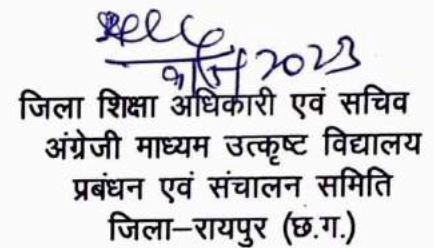 2023
जिला शिक्षा अधिकारी एवं सचिव
अंग्रेजी माध्यम उत्कृष्ट विद्यालय
प्रबंधन एवं संचालन समिति
जिला–रायपुर (छ.ग.)